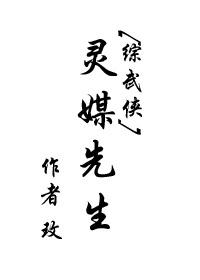 [综武侠]
灵媒先生
作者 玫